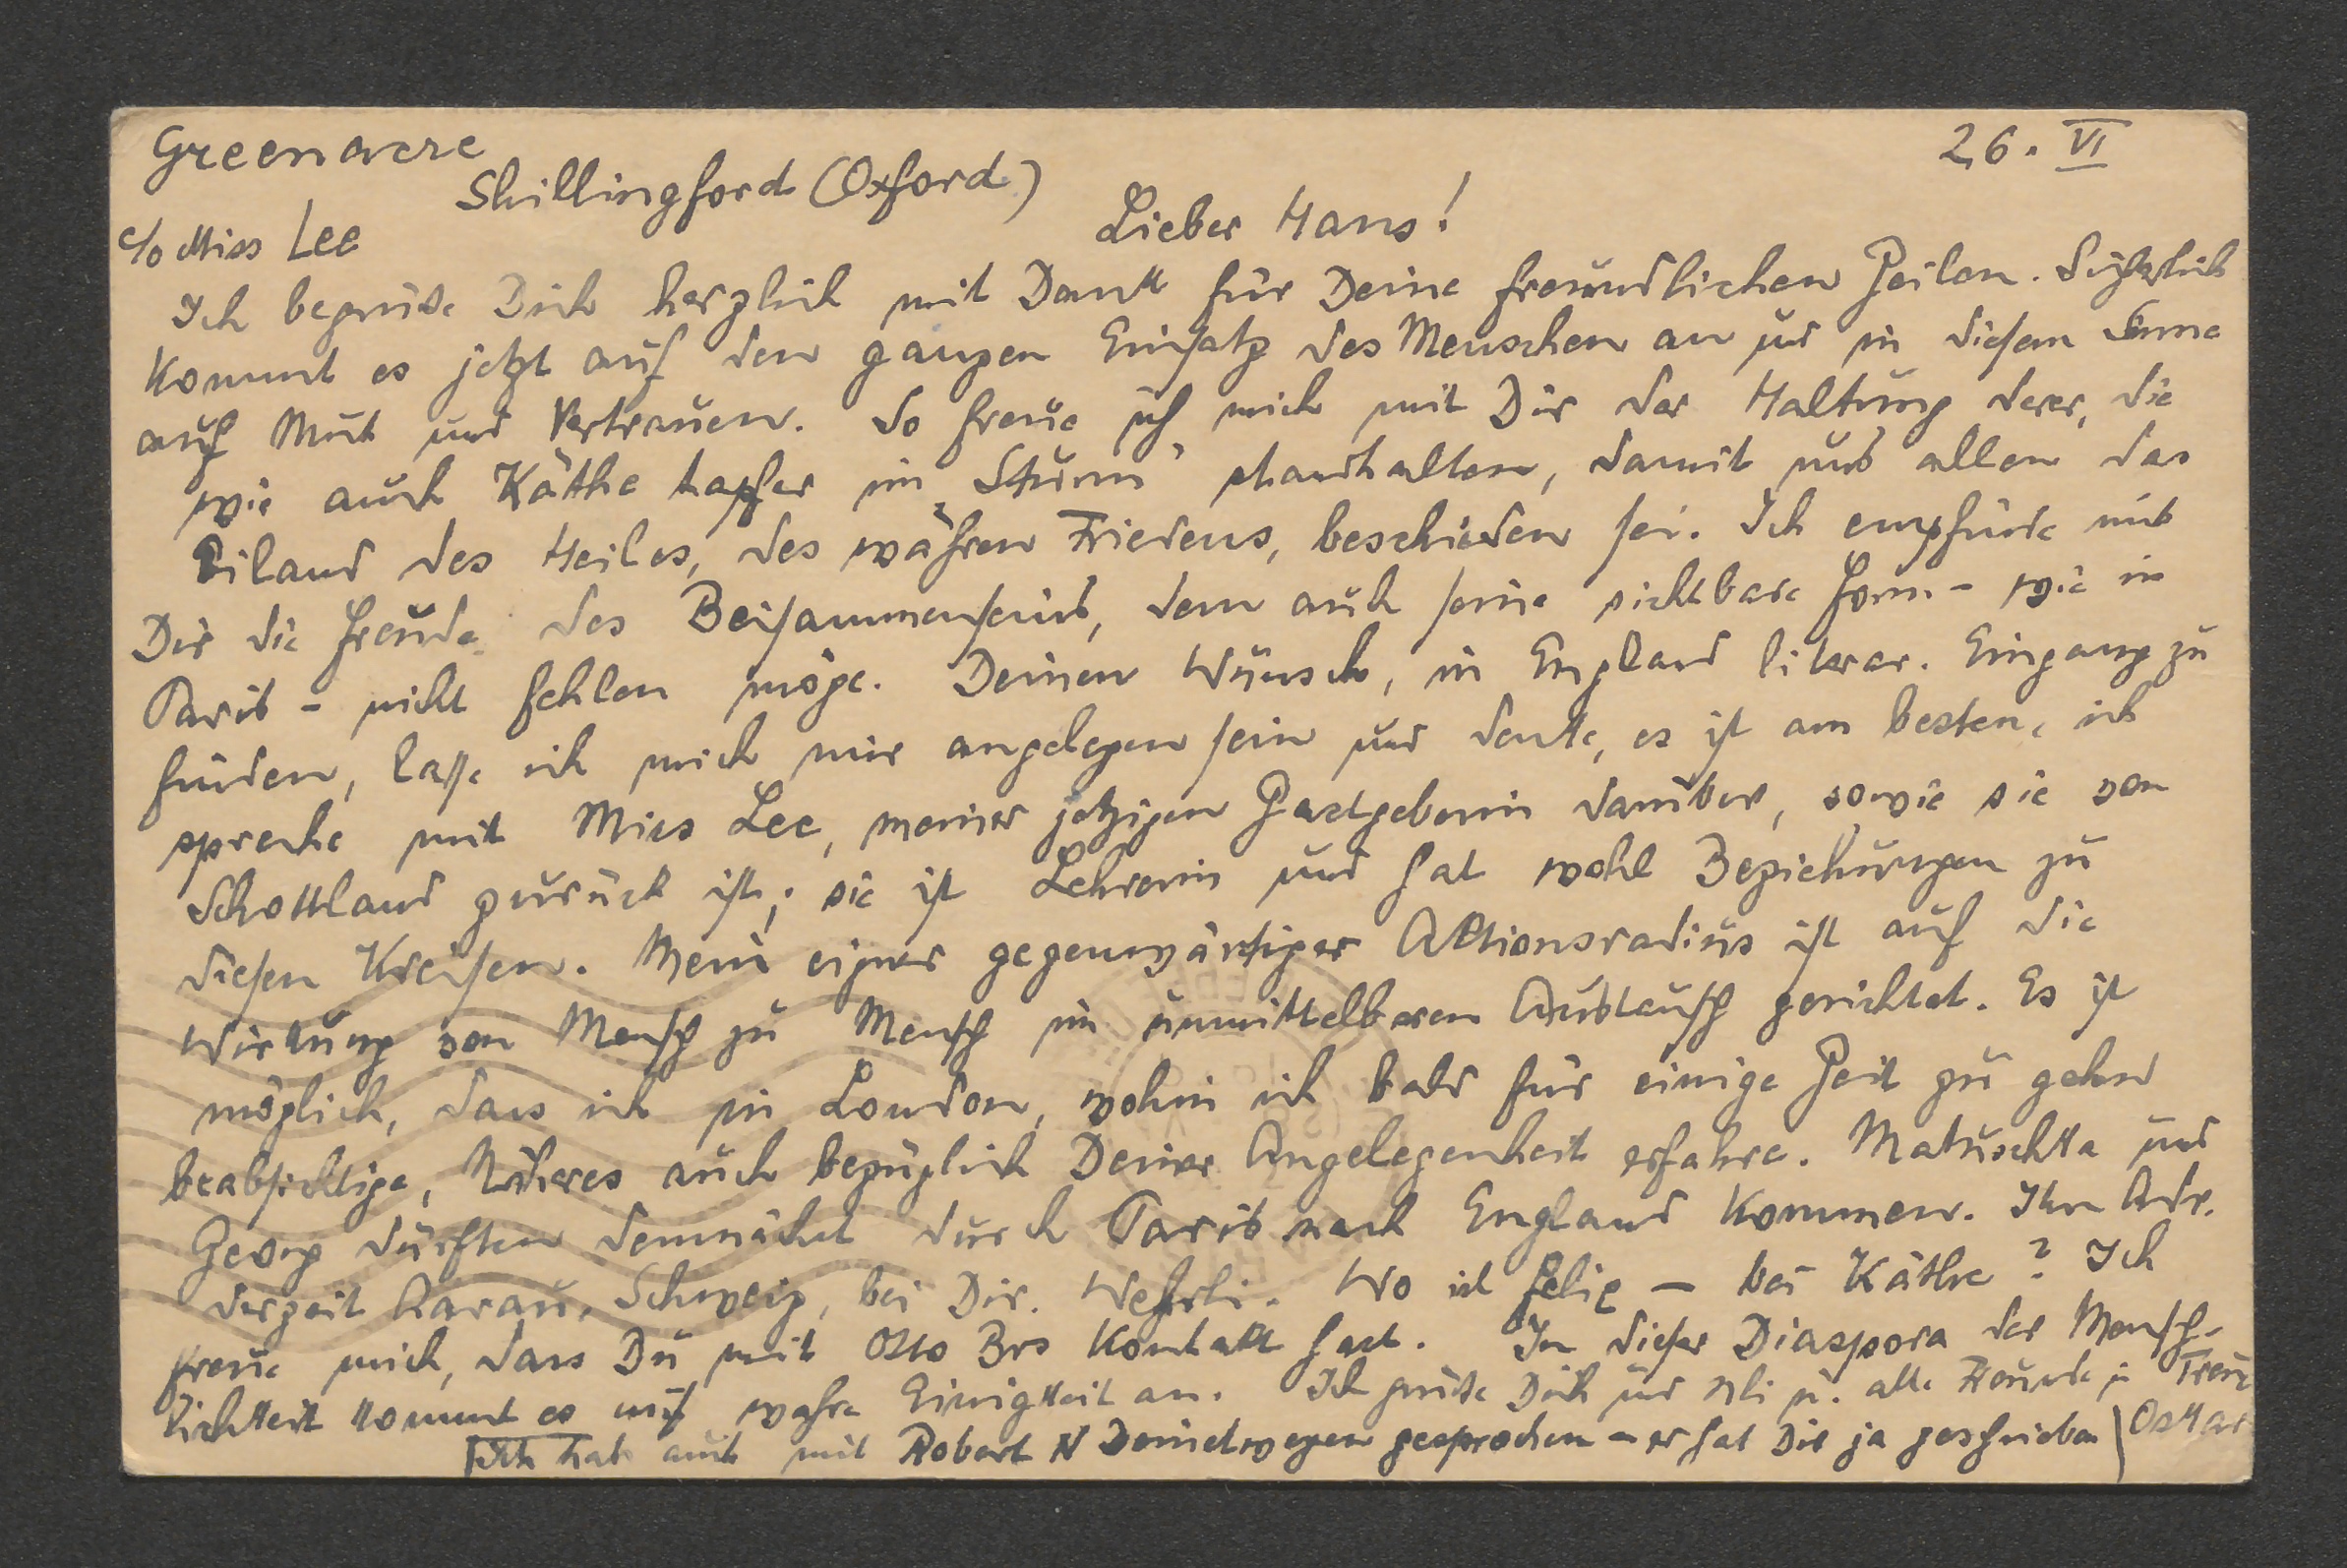 Greenacre
26. VI
Shillingford (Oxford)
c/o Miss Lee
Lieber Hans!
Ich begrüße Dich herzlich mit Dank für Deine freundlichen Zeilen. Sicherlich
kommt es jetzt auf den ganzen Einsatz des Menschen an und in diesem Sinne
auf Mut und Vertrauen. So freue ich mich mit Dir der Haltung derer, die
wie auch Käthe tapfer im „Sturm" standhalten, damit uns allen das
Eiland des Heiles, des wahren Friedens, beschieden sei. Ich empfinde mit
Dir die Freude des Beisammenseins, dem auch seine sichtbare Form - wie in
Paris - nicht fehlen möge. Deinen Wunsch, in England literar. Eingang zu
finden, lasse ich mich mir angelegen sein und denke, es ist am besten, ich
spreche mit Miss Lee, meiner jetzigen Gastgeberin darüber, sowie sie von
Schottland zurück ist; sie ist Lehrerin und hat wohl Beziehungen zu
diesen Kreisen. Mein eigner gegenwärtiger Aktionsradius ist auf die
Wirkung von Mensch zu Mensch im unmittelbaren Austausch gerichtet. Es ist
möglich, dass ich in London, wohin ich bald für einige Zeit zu gehen
beabsichtige, Näheres auch bezüglich Deiner Angelegenheit erfahre. Matuschka und
Georg dürften demnächst durch Paris nach England kommen. Ihre Adr.
derzeit Aarau, Schweiz, bei Dir. Wehrli. Wo ist Felix - bei Käthe? Ich
freue mich, dass Du mit Otto Brs Kontakt hast. In dieser Diaspora der Mensch-
lichkeit kommt es auf wahre Einigkeit an. Ich grüße Dich und Uli u. alle Freunde in Treue
Oskar
Ich hab auch mit Robert N Deinetwegen gesprochen - er hat Dir ja geschrieben